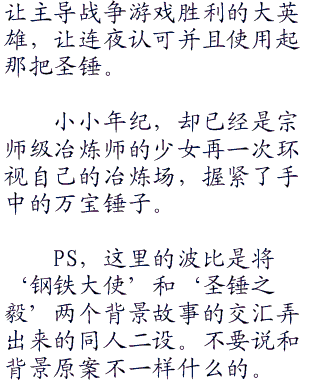 让主导战争游戏胜利的大英
雄，让连夜认可并且使用起
那把圣锤。
小小年纪，却已经是宗
师级冶炼师的少女再一次环
视自己的冶炼场，握紧了手
中的万宝锤子。
PS，这里的波比是将
‘钢铁大使’和‘圣锤之
毅’两个背景故事的交汇弄
出来的同人二设。不要说和
背景原案不一样什么的。